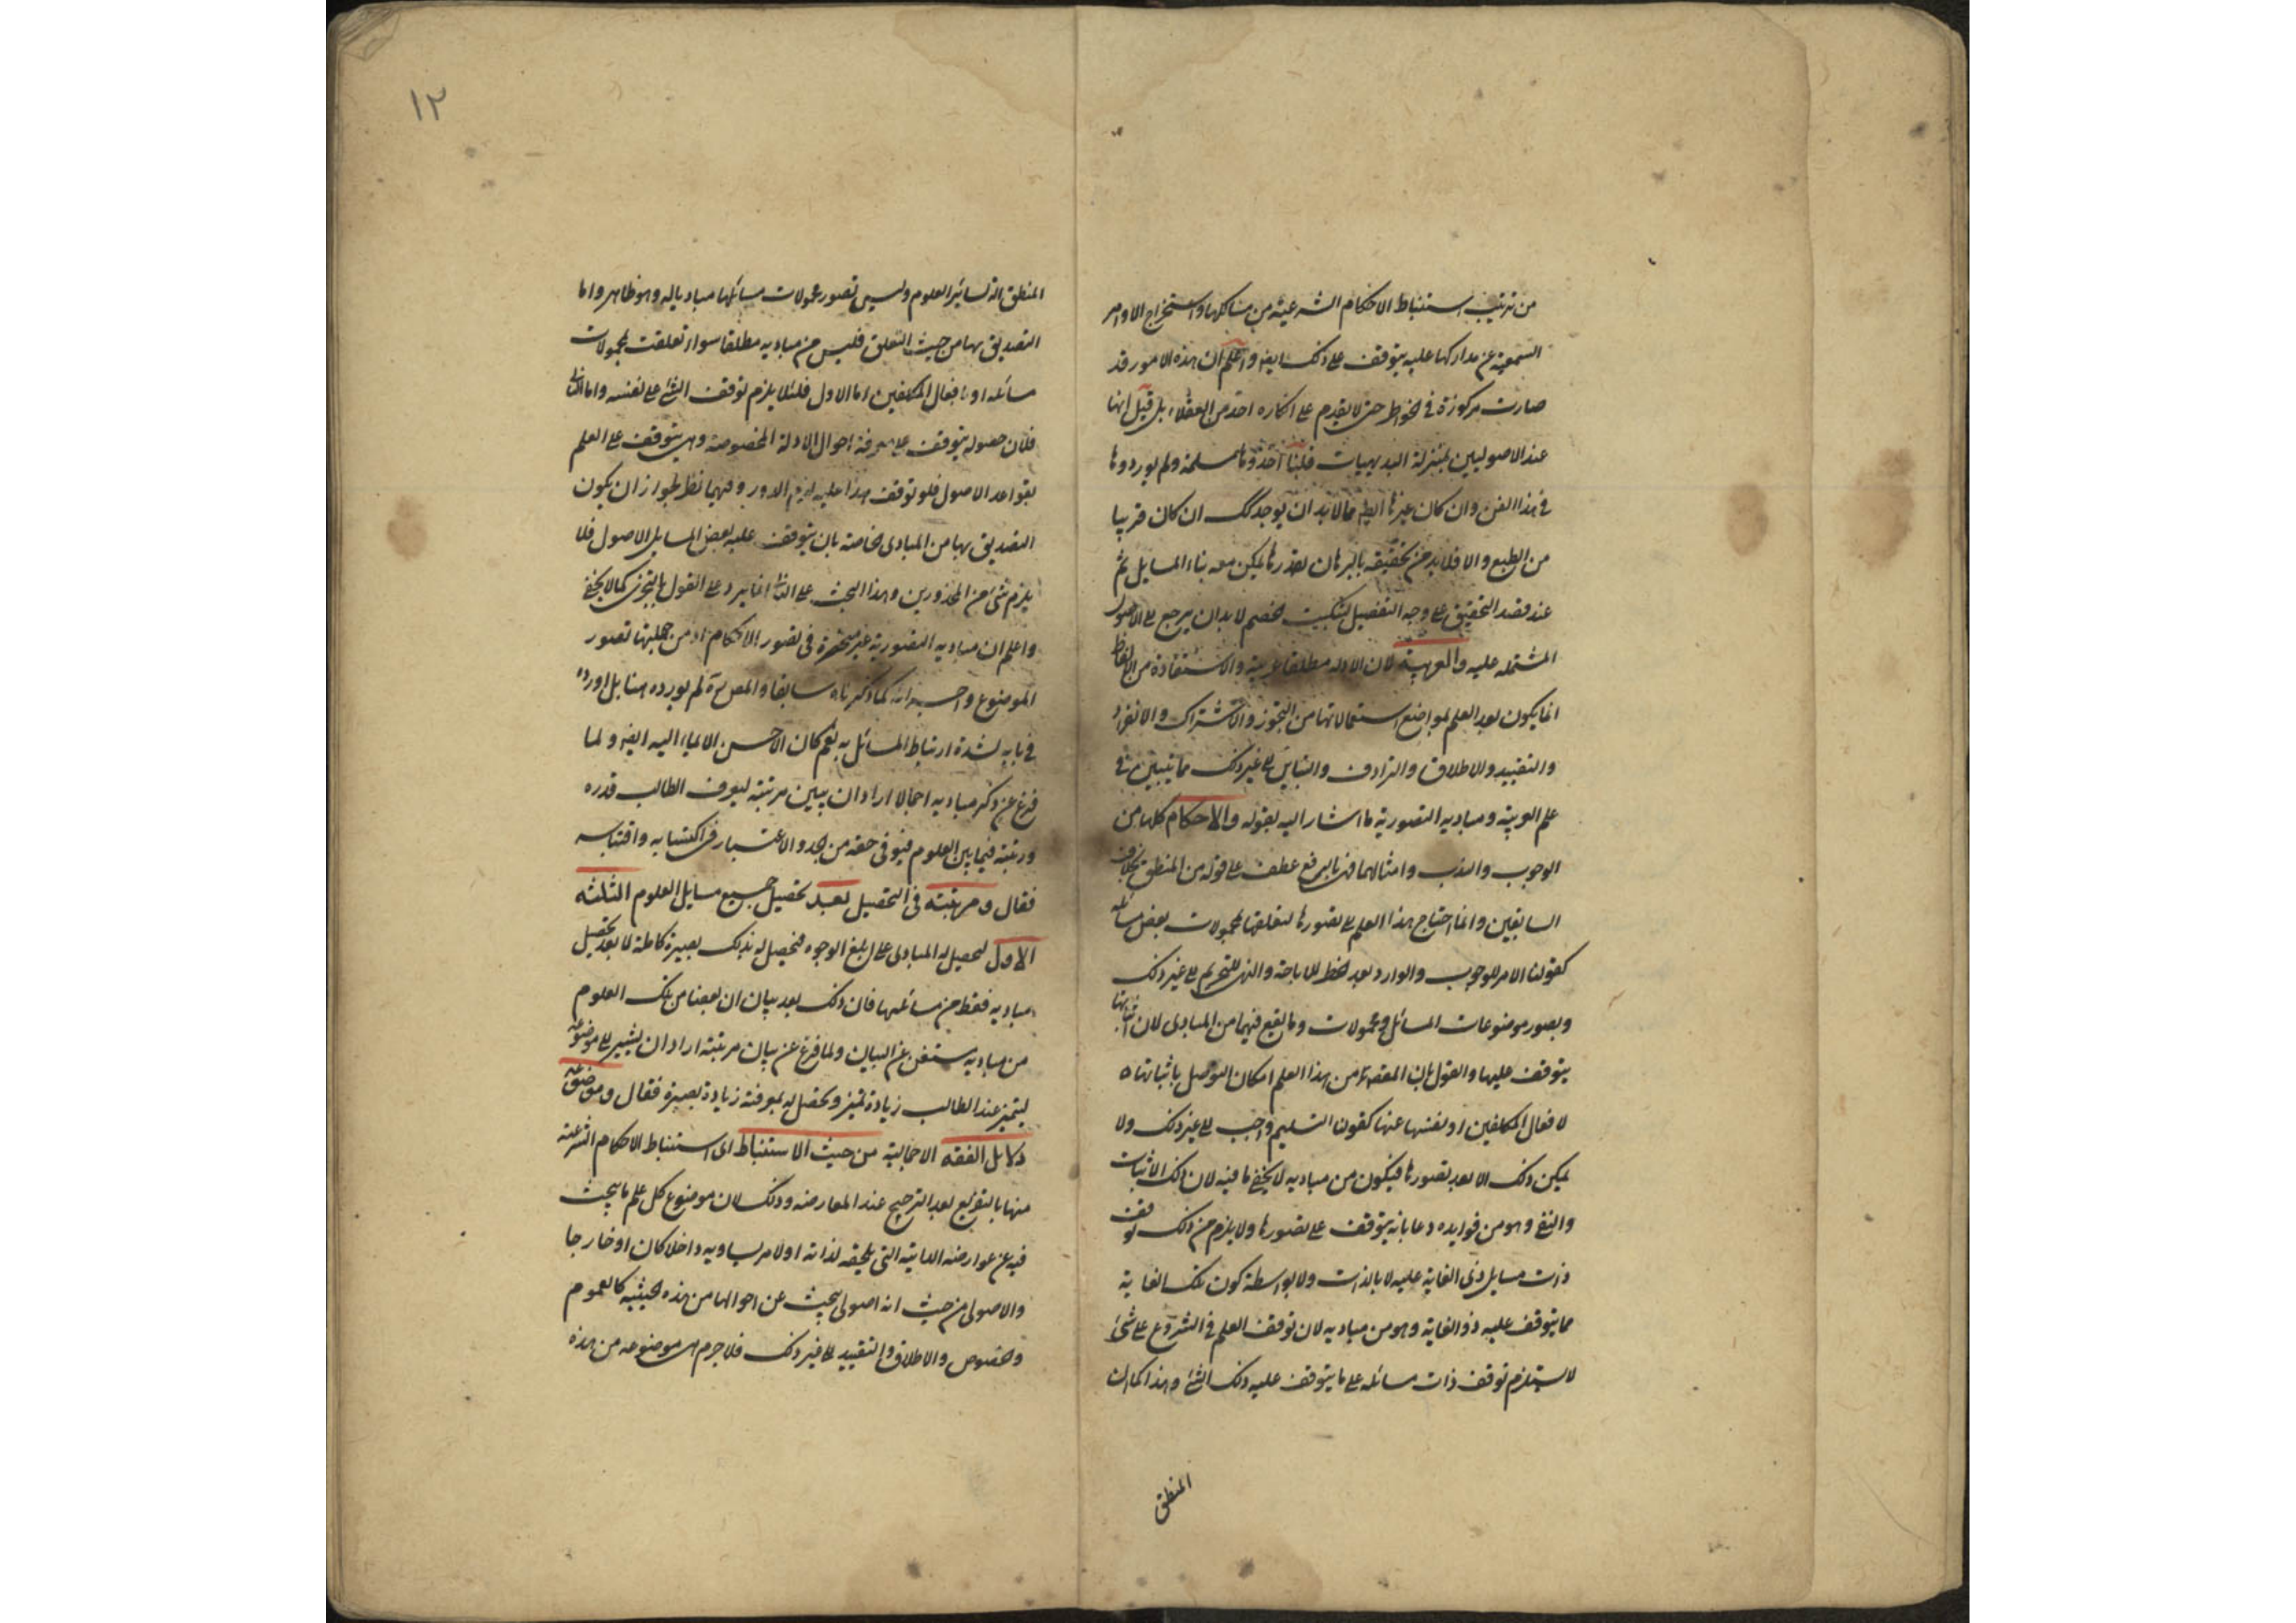 من ترتيب استنباط الاحكام الشرعية من مسالكها واستخراج الاوامر
السمعية عن مداركها عليه يتوقف على ذلك ايضا واعلم ان هذه الامور قد
صارت مركوزة في الخواطر حتى لا يقدم على انكاره احد من العقلاء بل قيل انها
عند الاصوليين بمنزلة البديهيات فلهذا اخذوها مسلمة ولم يوردوها
في هذا الفن وان كان غيرها ايضا مما لابد ان يوجد كك ان كان قريبا
من الطبع والا فلابد من تحقيقه بالبرهان بقدر ما يمكن معه بناء المسايل ثم
عند قصد التحقيق على وجه التفصيل لتبكيت الخصم لابد ان يرجع الى الاصول
المشتمله عليه والعربية لان الادله مطلقا عربية والاستفادة من الالفاظ
انما يكون بعد العلم بمواضع استعمالاتها من التجوز والاشتراك والانفراد
والتقييد والاطلاق والترادف والتباين الى غير ذلك مما يتبين في
علم العربية ومباديه التصورية ما اشار اليه بقوله والاحكام كلها من
الوجوب والندب وامثالهما فهي بالرفع عطف على قوله من المنطق بخلاف
السابقين وانما احتاج هذا العلم الى تصورها لتعلقها بمحمولات بعض مسائله
كقولنا الامر للوجوب والوارد بعد الحظر للاباحة والنهي للتحريم الى غير ذلك
وتصور موضوعات المسائل ومحمولات وما يقع فيهما من المبادى لان اثباتها
يتوقف عليها والقول بان المقصود من هذا العلم امكان التوصل باثباتها
لافعال المكلفين او نفيها عنها كقولنا التسليم واجب الى غير ذلك ولا
يمكن ذلك الا بعد تصورها فيكون من مباديه لا يخفى ما فيه لان ذلك الاثبات
والنفي وهو من فوايده وغاياته يتوقف على تصورها ولا يلزم من ذلك توقف
ذات مسايل ذى الغاية عليه لا بالذات ولا بواسطة كون تلك الغاية
مما يتوقف عليه ذو الغاية وهو من مباديه لان توقف العلم في الشروع على شئ
لا يستلزم توقف ذات مسائله على ما يتوقف عليه ذلك الشئ وهذا كما ان
المنطق
١٢
المنطق آلة لسائر العلوم وليس تصور محمولات مسائلها مباديا له وهو ظاهر واما
التصديق بها من حيث التعلق فليس من مباديه مطلقا سواء تعلقت بمحمولات
مسائله او بافعال المكلفين اما الاول فلئلا يلزم توقف الشئ على نفسه واما الثانى
فلان حصوله يتوقف على معرفة احوال الادلة المخصوصة وهى يتوقف على العلم
بقواعد الاصول فلو توقف هذا عليه لزم الدور وفيهما نظر لجواز ان يكون
التصديق بها من المبادى الخاصة بان يتوقف عليه بعض المسايل الاصول فلا
يلزم شئ من المحذورين وهذا البحث على الثانى انما يرد على القول بالتجزى كما لا يخفى
واعلم ان مباديه التصورية غير منحصرة في تصور الاحكام اذ من جملتها تصور
الموضوع واجزائه كما ذكرناه سابقا والمص ره لم يورده هنا بل اورده
في بابه لشدة ارتباط المسائل به نعم كان الاحسن الايماء اليه ايضا ولما
فرغ عن ذكر مباديه اجمالا اراد ان يبين مرتبته ليعرف الطالب قدره
ورتبته فيما بين العلوم فيوفى حقه من الجد والاعتبار في اكتسابه واقتباسه
فقال ومرتبته في التحصيل بعد تحصيل جميع مسايل العلوم الثلثه
الاول ليحصل له المبادى على ابلغ الوجوه فيحصل له بذلك بصيرة كاملة لا بعد تحصيل
مباديه فقط من مسائلها فان ذلك بعد بيان ان بعضا من تلك العلوم
من مباديه مستغن عن البيان ولما فرغ عن بيان مرتبته اراد ان يشير الى موضوعه
ليتميز عند الطالب زيادة تميز ويحصل له بمعرفته زيادة بصيرة فقال وموضوعه
دلايل الفقه الاجمالية من حيث الاستنباط اى استنباط الاحكام الشرعية
منها بالتفريع بعد الترجيح عند المعارضه وذلك لان موضوع كل علم ما يبحث
فيه عن عوارضه الذاتية التى تلحقه لذاته او لامر يساويه داخلا كان او خارجا
والاصولى من حيث انه اصولى يبحث عن احوالها من هذه الحيثية كالعموم
والخصوص والاطلاق والتقييد الى غير ذلك فلا جرم هى موضوعه من هذه